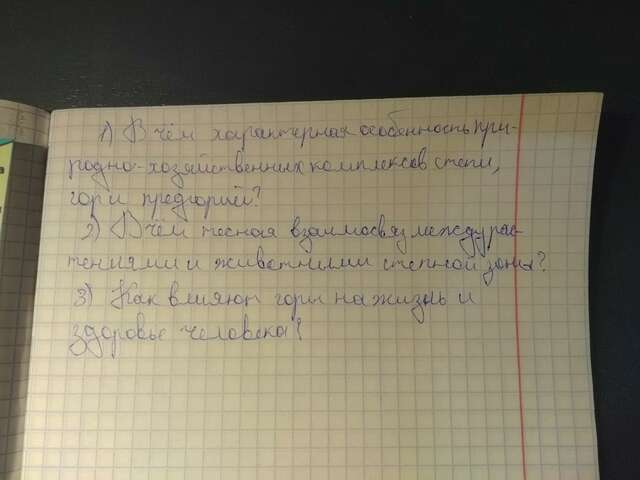 1) В чём характерная особенность при-
родно-хозяйственных комплексов степи,
гор и предгорий?
2) В чём тесная взаимосвязь между рас-
тениями и животными степной зоны?
3) Как влияют горы на жизнь и
здоровье человека?